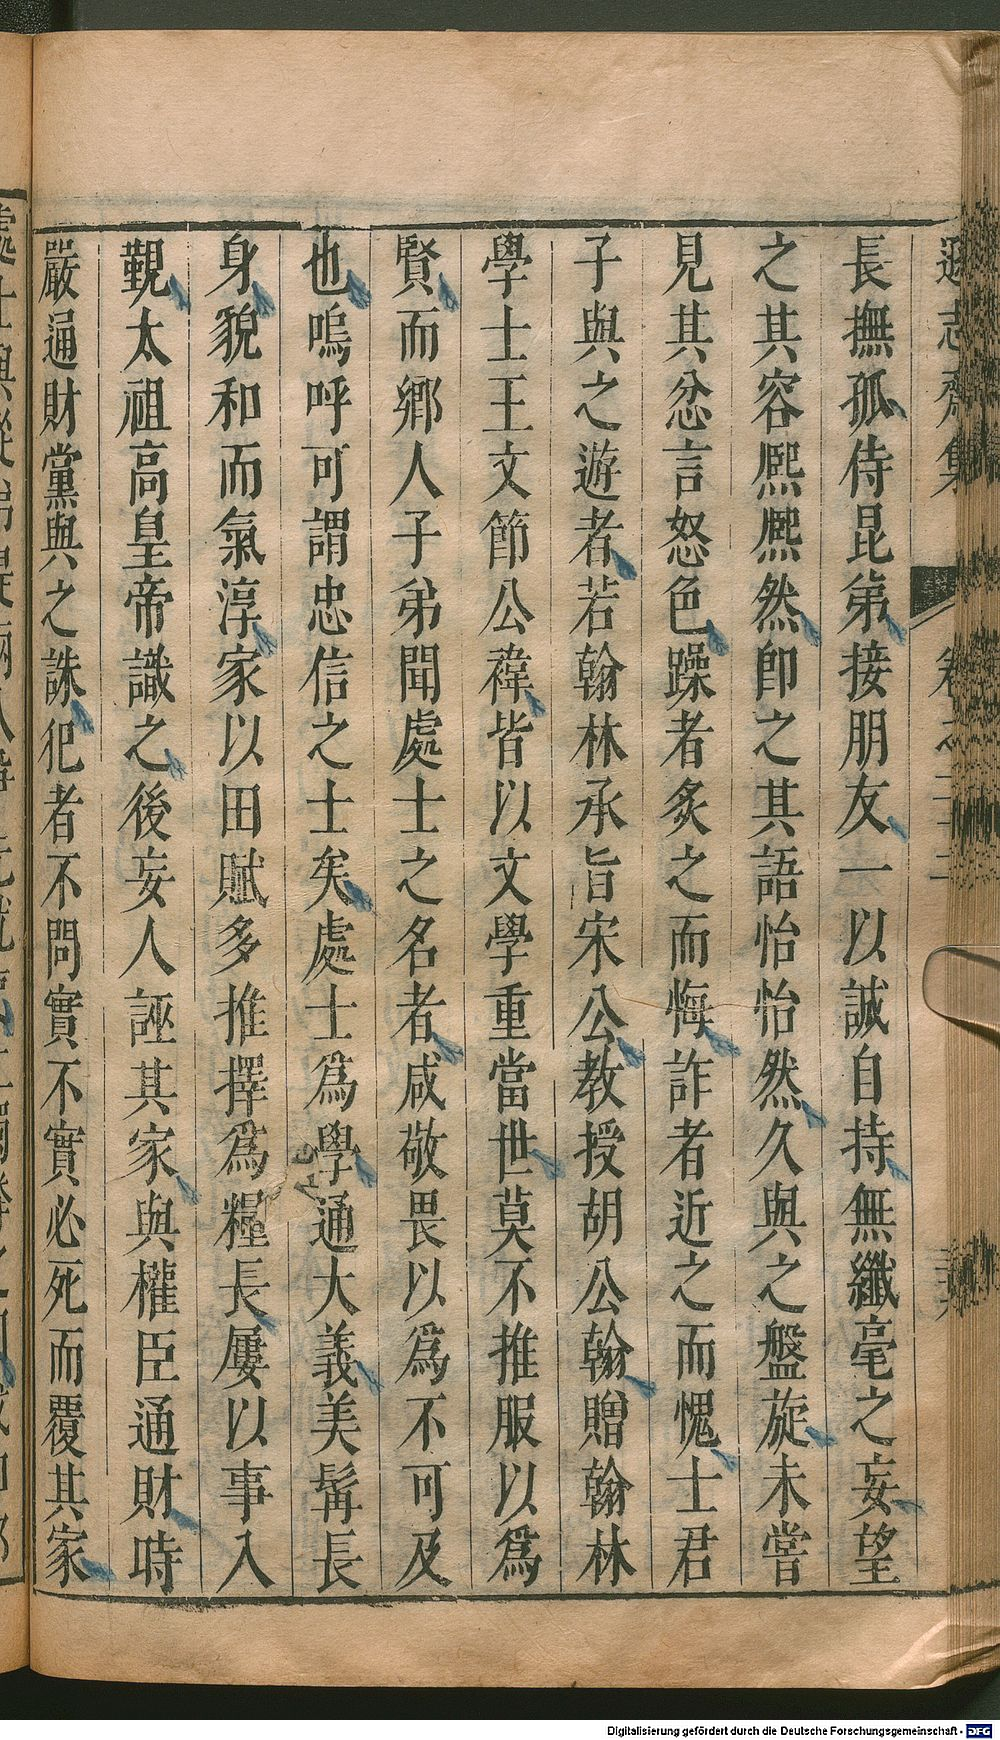 遜志齋集 卷之二十二
長撫孤侍昆弟接朋友一以誠自持無纖毫之妄望
之其容熙熙然即之其語怡怡然久與之盤旋未嘗
見其忿言怒色躁者炙之而悔詐者近之而愧士君
子與之遊者若翰林承旨宋公教授胡公翰贈翰林
學士王文節公禕皆以文學重當世莫不推服以爲
賢而鄉人子弟聞處士之名者咸敬畏以爲不可及
也嗚呼可謂忠信之士矣處士爲學通大義美髯長
身貌和而氣淳家以田賦多推擇爲糧長屢以事入
覲太祖高皇帝識之後妄人誣其家與權臣通財時
嚴通財黨與之誅犯者不問實不實必死而覆其家
Digitalisierung gefördert durch die Deutsche Forschungsgemeinschaft - DFG